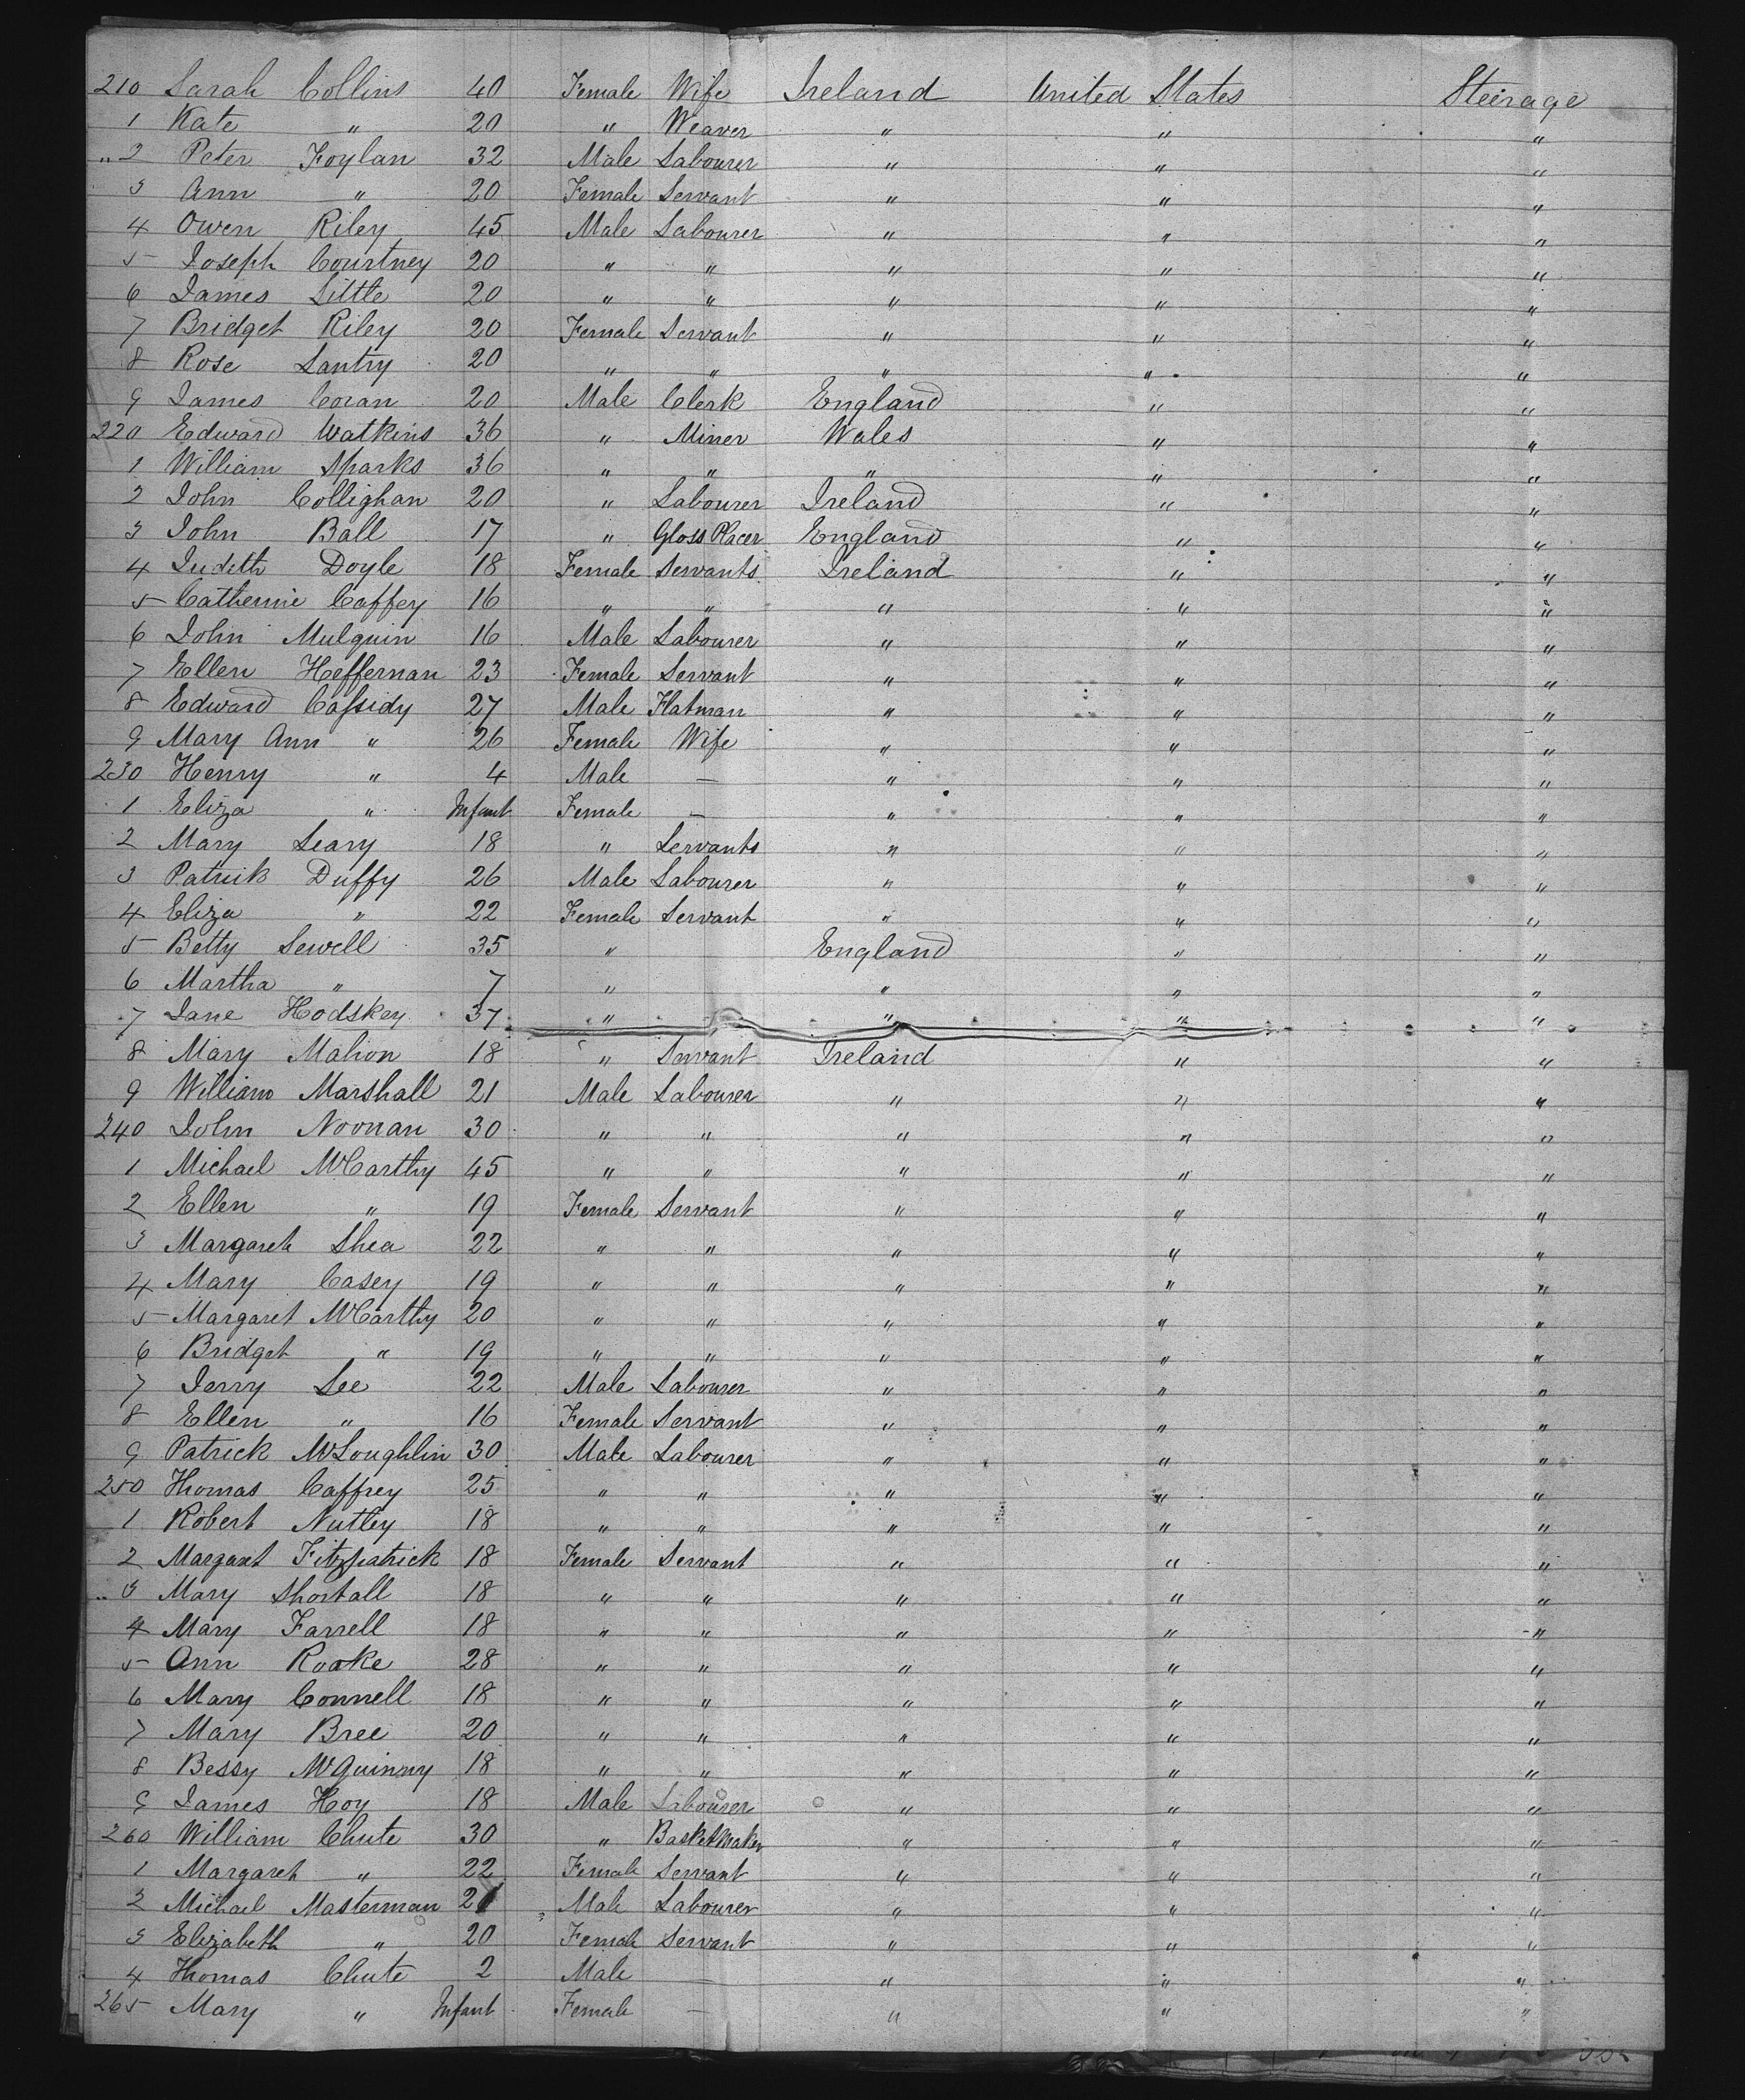 210 Sarah Collins 40 Female Wife Ireland United States Steerage
1 Kate " 20 " Weaver " " "
" 2 Peter Foylan 32 Male Labourer " " "
3 Ann " 20 Female Servant " " "
4 Owen Riley 45 Male Labourer " " "
5 Joseph Courtney 20 " " " " "
6 James Little 20 " " " " "
7 Bridget Riley 20 Female Servant " " "
8 Rose Lantry 20 " " " " "
9 James Coran 20 Male Clerk England " "
220 Edward Watkins 36 " Miner Wales " "
1 William Sparks 36 " " " " "
2 John Collighan 20 " Labourer Ireland " "
3 John Ball 17 " Gloss Placer England " "
4 Judith Doyle 18 Female Servants Ireland " "
5 Catherine Caffey 16 " " " " "
6 John Mulquin 16 Male Labourer " " "
7 Ellen Heffernan 23 Female Servant " " "
8 Edward Cassidy 27 Male Flatman " " "
9 Mary Ann " 26 Female Wife " " "
230 Henry " 4 Male — " " "
1 Eliza " Infant Female — " " "
2 Mary Leary 18 " Servants " " "
3 Patrick Duffy 26 Male Labourer " " "
4 Eliza " 22 Female Servant " " "
5 Betty Sewell 35 " England " "
6 Martha " 7 " " " "
7 Jane Hodskey 37 " " " "
8 Mary Mahon 18 " Servant Ireland " "
9 William Marshall 21 Male Labourer " " "
240 John Noonan 30 " " " " "
1 Michael McCarthy 45 " " " " "
2 Ellen " 19 Female Servant " " "
3 Margaret Shea 22 " " " " "
4 Mary Casey 19 " " " " "
5 Margaret McCarthy 20 " " " " "
6 Bridget " 19 " " " " "
7 Jerry Lee 22 Male Labourer " " "
8 Ellen " 16 Female Servant " " "
9 Patrick McLoughlin 30 Male Labourer " " "
250 Thomas Caffrey 25 " " " " "
1 Robert Nutley 18 " " " " "
2 Margaret Fitzpatrick 18 Female Servant " " "
" 3 Mary Shortall 18 " " " " "
4 Mary Farrell 18 " " " " "
5 Ann Roake 28 " " " " "
6 Mary Connell 18 " " " " "
7 Mary Bree 20 " " " " "
8 Bessy McGuinny 18 " " " " "
9 James Hoy 18 Male Labourer " " "
260 William Chute 30 " Basket Maker " " "
1 Margaret " 22 Female Servant " " "
2 Michael Masterman 21 Male Labourer " " "
3 Elizabeth " 20 Female Servant " " "
4 Thomas Chute 2 Male — " " "
265 Mary " Infant Female — " " "